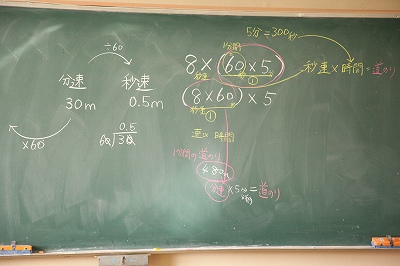 ÷60
分速 秒速
30m 0.5m
×60
0.5
60)30
5分=300秒
1分間
8×(60×5)
秒速 ①
秒速×時間=道のり
(8×60)×5
秒速 ①
速×時間
1分間の道のり
480m
分速×5分=道のり
時間